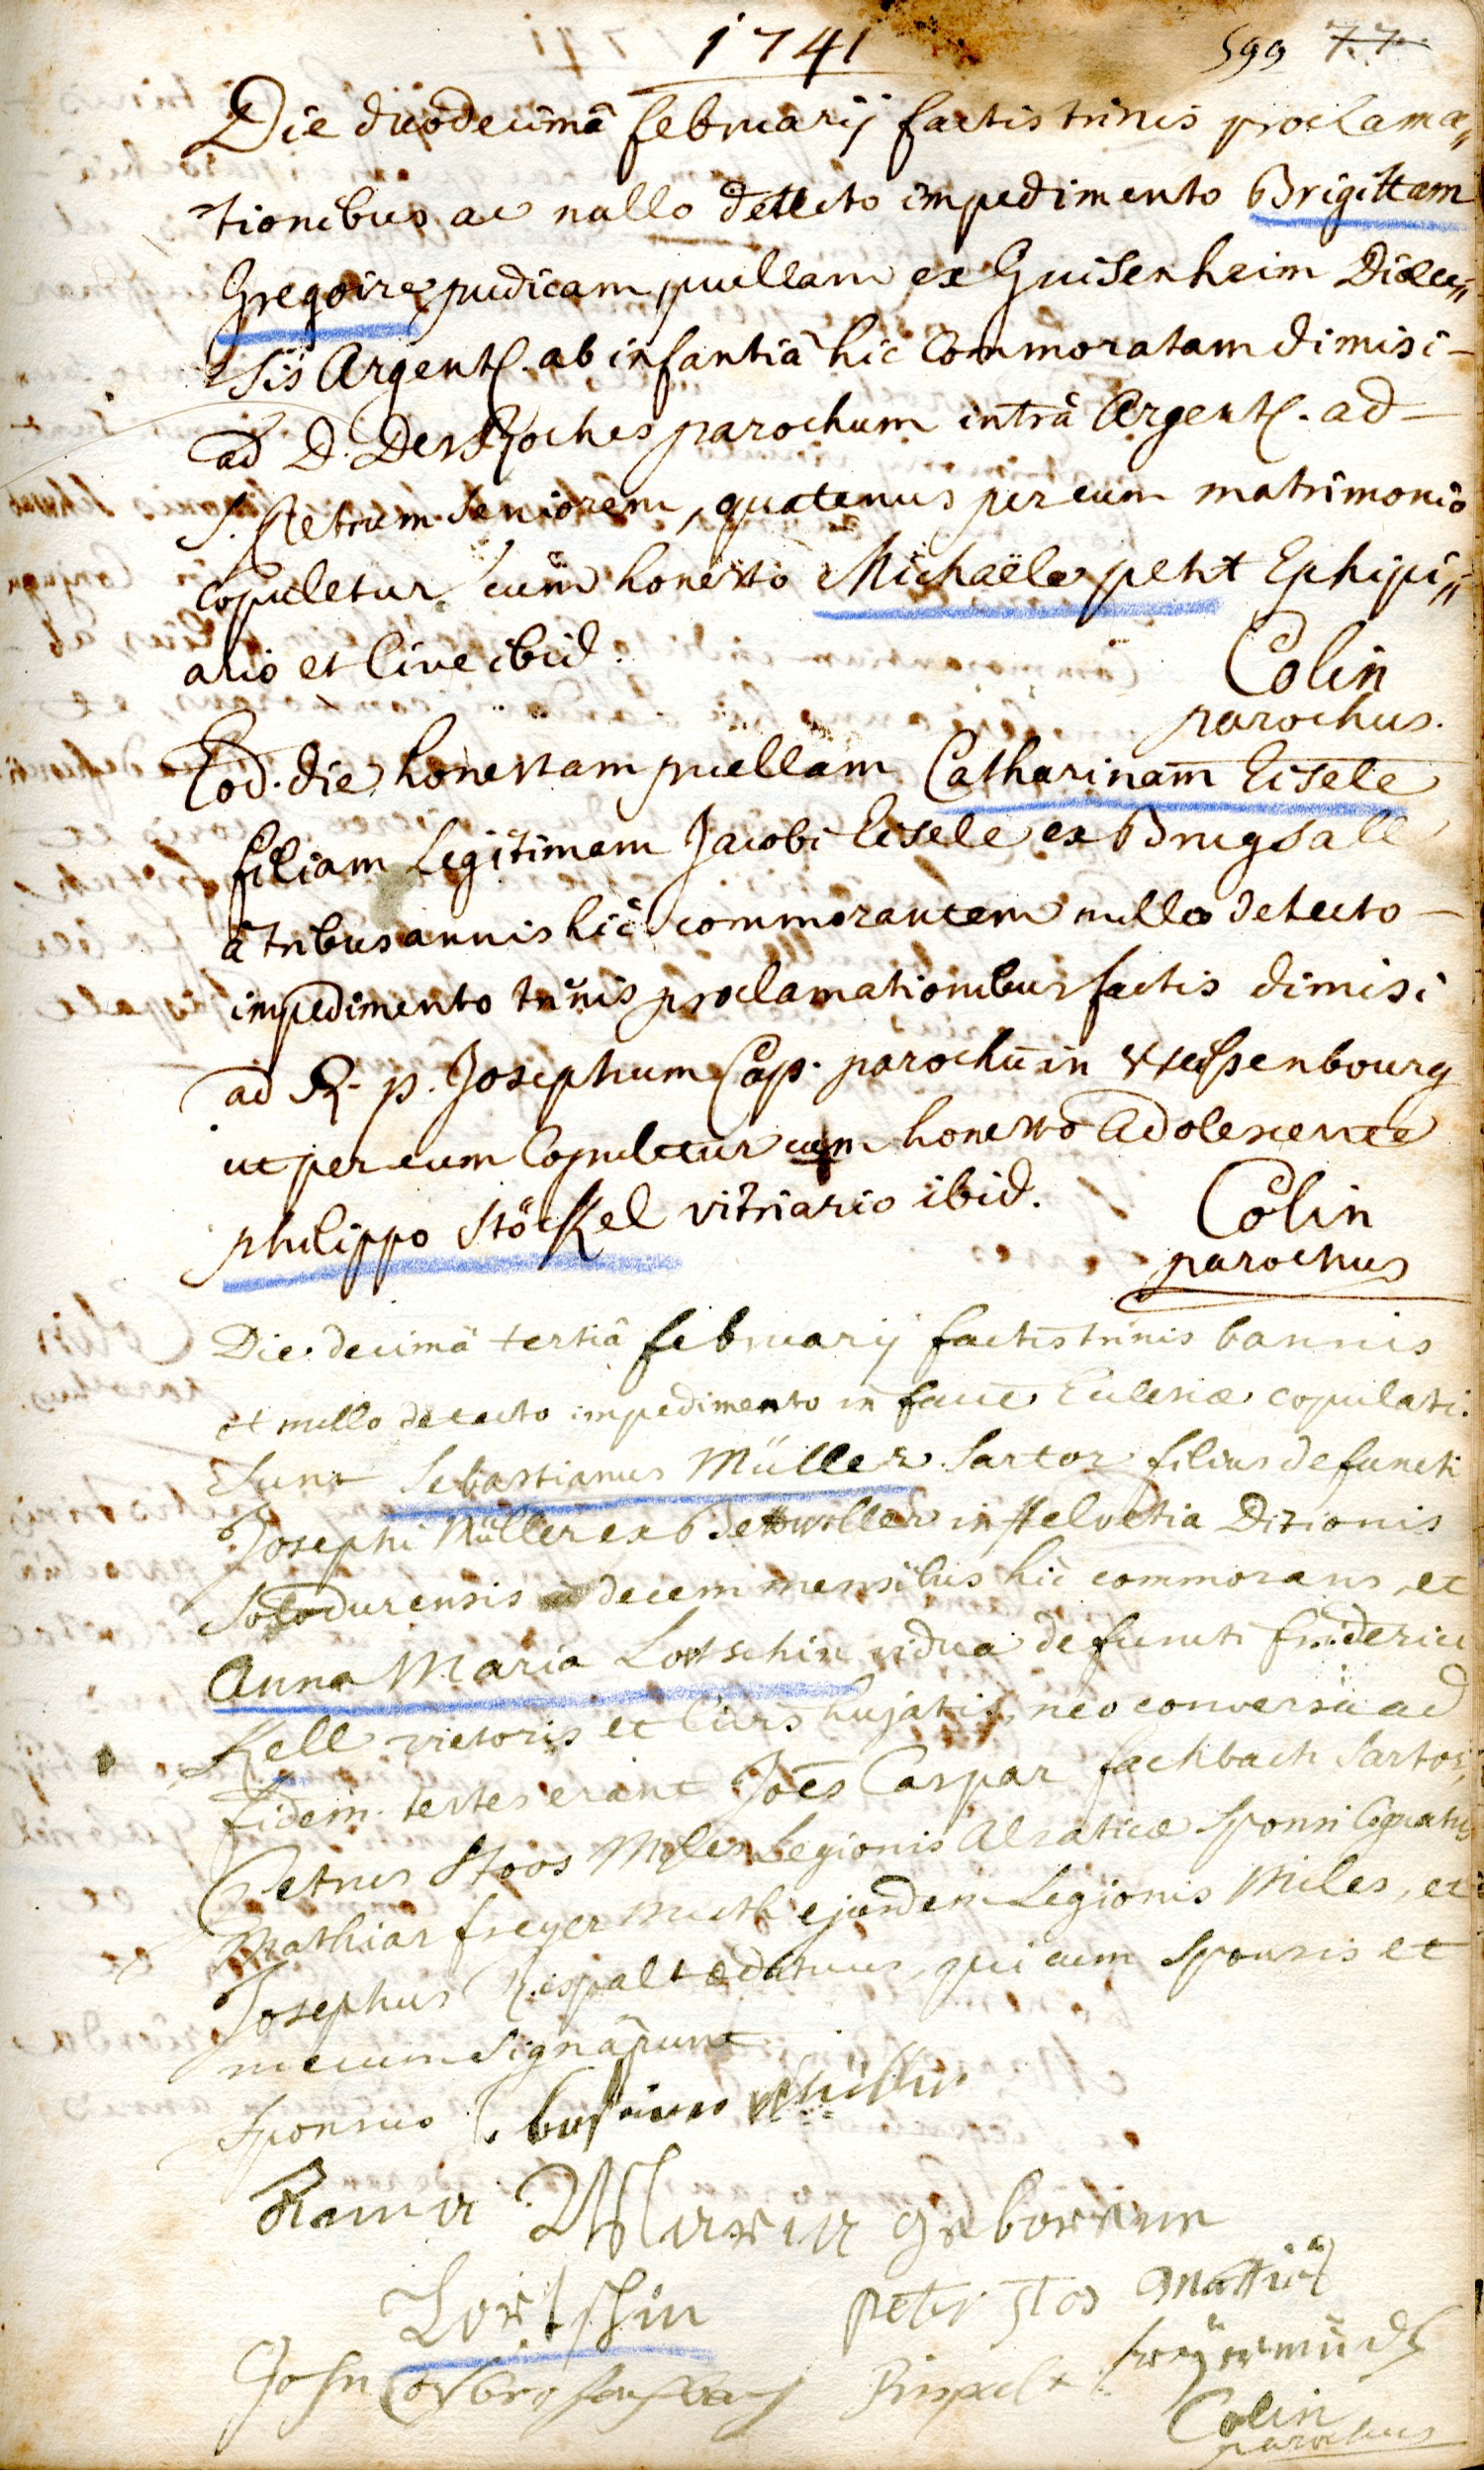 1741
599 77
Die duodecimâ februarij factis trinis proclama„
tionibus ac nullo detecto impedimento Brigittam
Gregoire pudicam puellam ex Guisenheim Dioece„
sis Argent. ab infantiâ hic Commoratam dimisi –
ad D. Des Roches parochum intrà Argent. ad –
S. Petrum Seniorem, quatenus per eum matrimonio
copuletur cum honesto Michaële petit Ephipi„
ario et Cive ibid.
Colin
parochus.
Eod. die honestam puellam Catharinam Eisele
filiam Legitimam Jacobi Eisele ex Brugsall
â tribus annis hîc commorantem nullo detecto –
impedimento trinis proclamationibus factis dimisi
ad R. p. Josephum Cap. parochū in Weissenbourg
ut per eum Copuletur cum honesto adolescente
philippo Stöckel vitriario ibid.
Colin
parochus
Die decimâ tertiâ februarij factis trinis bannis
et nullo detecto impedimento in facie Eclesiæ copulati
sunt Sebastianus Müller Sartor filius defuncti
Josephi Müller ex Bettwiller in Helvetia Ditionis
Solodurensis a decem mensibus hîc commorans, et
Anna Maria Lortschin vidua defuncti friderici
Kell vietoris et Civis hujatis, neo conversa ad
fidem. testes erant Joēs Caspar fachbach Sartor,
Petrus Stoos Miles Legionis Alsaticæ Sponsi Cognatus
Mathias freyermuth ejusdem Legionis Miles, et
Josephus Rispalt ædituus, qui cum Sponsis et
mecum signârunt
Sponsus Sebastian Müller
Anna Maria geborene
Lortschin
peter Stos Mattias
freyermudh
Rispalt
Colin
parochus